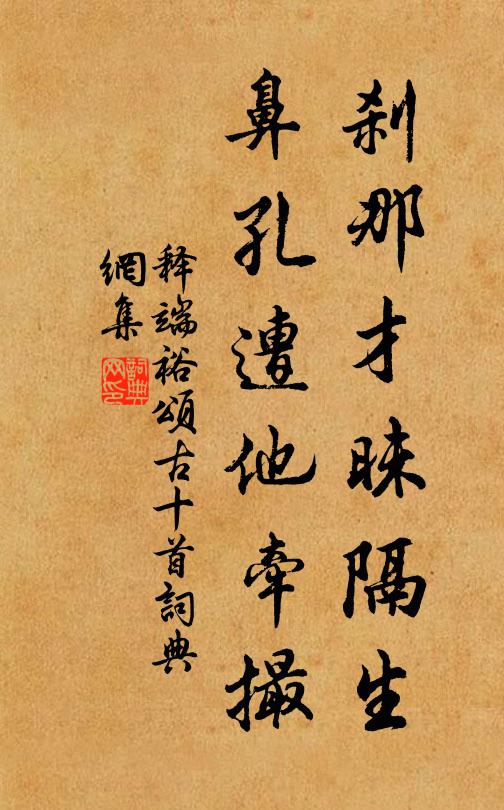 刹那才昧隔生
鼻孔遭他牵撮
释端裕頌古十首詞典
網集
詞典
网印